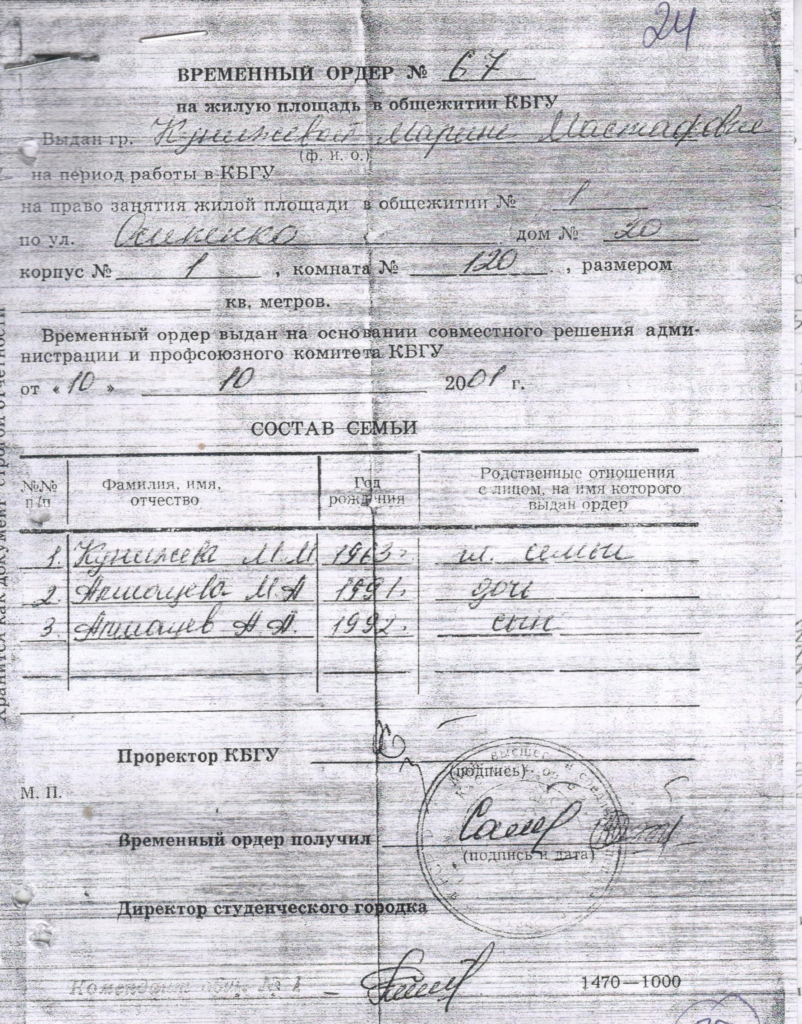 24
ВРЕМЕННЫЙ ОРДЕР № 67
на жилую площадь в общежитии КБГУ
Выдан гр. Кунижевой Марине Мастафовне
(ф. и. о.)
на период работы в КБГУ
на право занятия жилой площади в общежитии № 1
по ул. Осипенко дом № 20
корпус № 1 , комната № 120 , размером
кв. метров.
Временный ордер выдан на основании совместного решения адми-
нистрации и профсоюзного комитета КБГУ
от «10» 10 2001 г.
СОСТАВ СЕМЬИ
№№ п/п Фамилия, имя, отчество Год рождения Родственные отношения с лицом, на имя которого выдан ордер
1. Кунижева М.М. 1963г. гл. семьи
2. Апшацева М.А 1991г. дочь
3. Апшацев А.А. 1992г. сын
Проректор КБГУ
(подпись)
М. П.
Временный ордер получил
(подпись и дата)
Директор студенческого городка
Комендант общ. № 1
1470—1000
Хранится как документ строгой отчетности